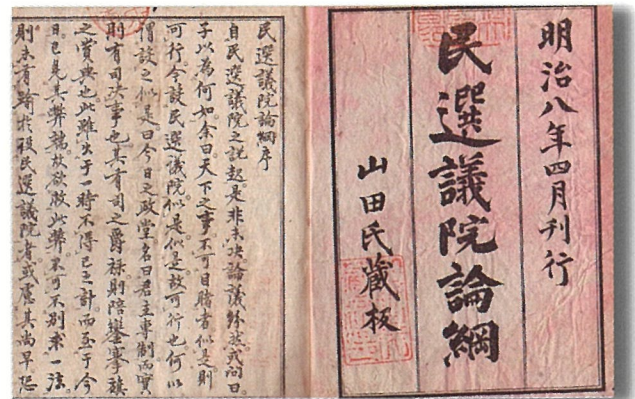 明治八年四月刊行
民選議院論綱
山田氏蔵板
民選議院論綱序
自民選議院之説起是非未決論議紛紜或問曰
子以為何如余曰天下之事不可目睹者似是則
可行今設民選議院似是似是故可行也何以
謂設之似是曰今日之政堂名曰君主専制而実
則有司決事也其有司之爵禄則陪轝搴旗
之賞典也此雖出于一時不得已之計而至于今
日已見其弊端故欲救此弊不可不別求一法
則未有踰於彼民選議院者或慮其尚早恐